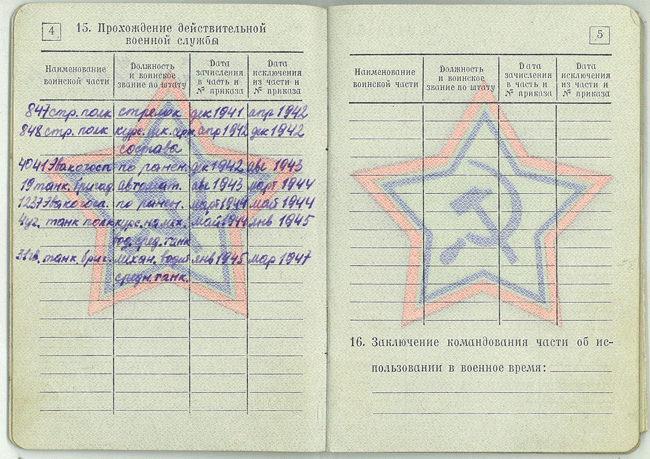 4
15. Прохождение действительной
военной службы
Наименование
воинской части
Должность
и воинское
звание по штату
Дата
зачисления
в часть и
№ приказа
Дата
исключения
из части и
№ приказа
847 стр. полк стрелок дек 1941 апр 1942
848 стр. полк курс. апр 1942 дек 1942
состава
4041 Эвакогосп по ранен. дек 1942 авг 1943
19 танк. бригад автомат. авг 1943 март 1944
1237 Эвакогосп. по ранен. март 1944 май 1944
танк полк курс. на мех. май 1944 янв 1945
вод. сред. танк
танк. бриг. механ. водит янв 1945 мар 1947
средн. танк.
5
Наименование
воинской части
Должность
и воинское
звание по штату
Дата
зачисления
в часть и
№ приказа
Дата
исключения
из части и
№ приказа
16. Заключение командования части об ис-
пользовании в военное время: